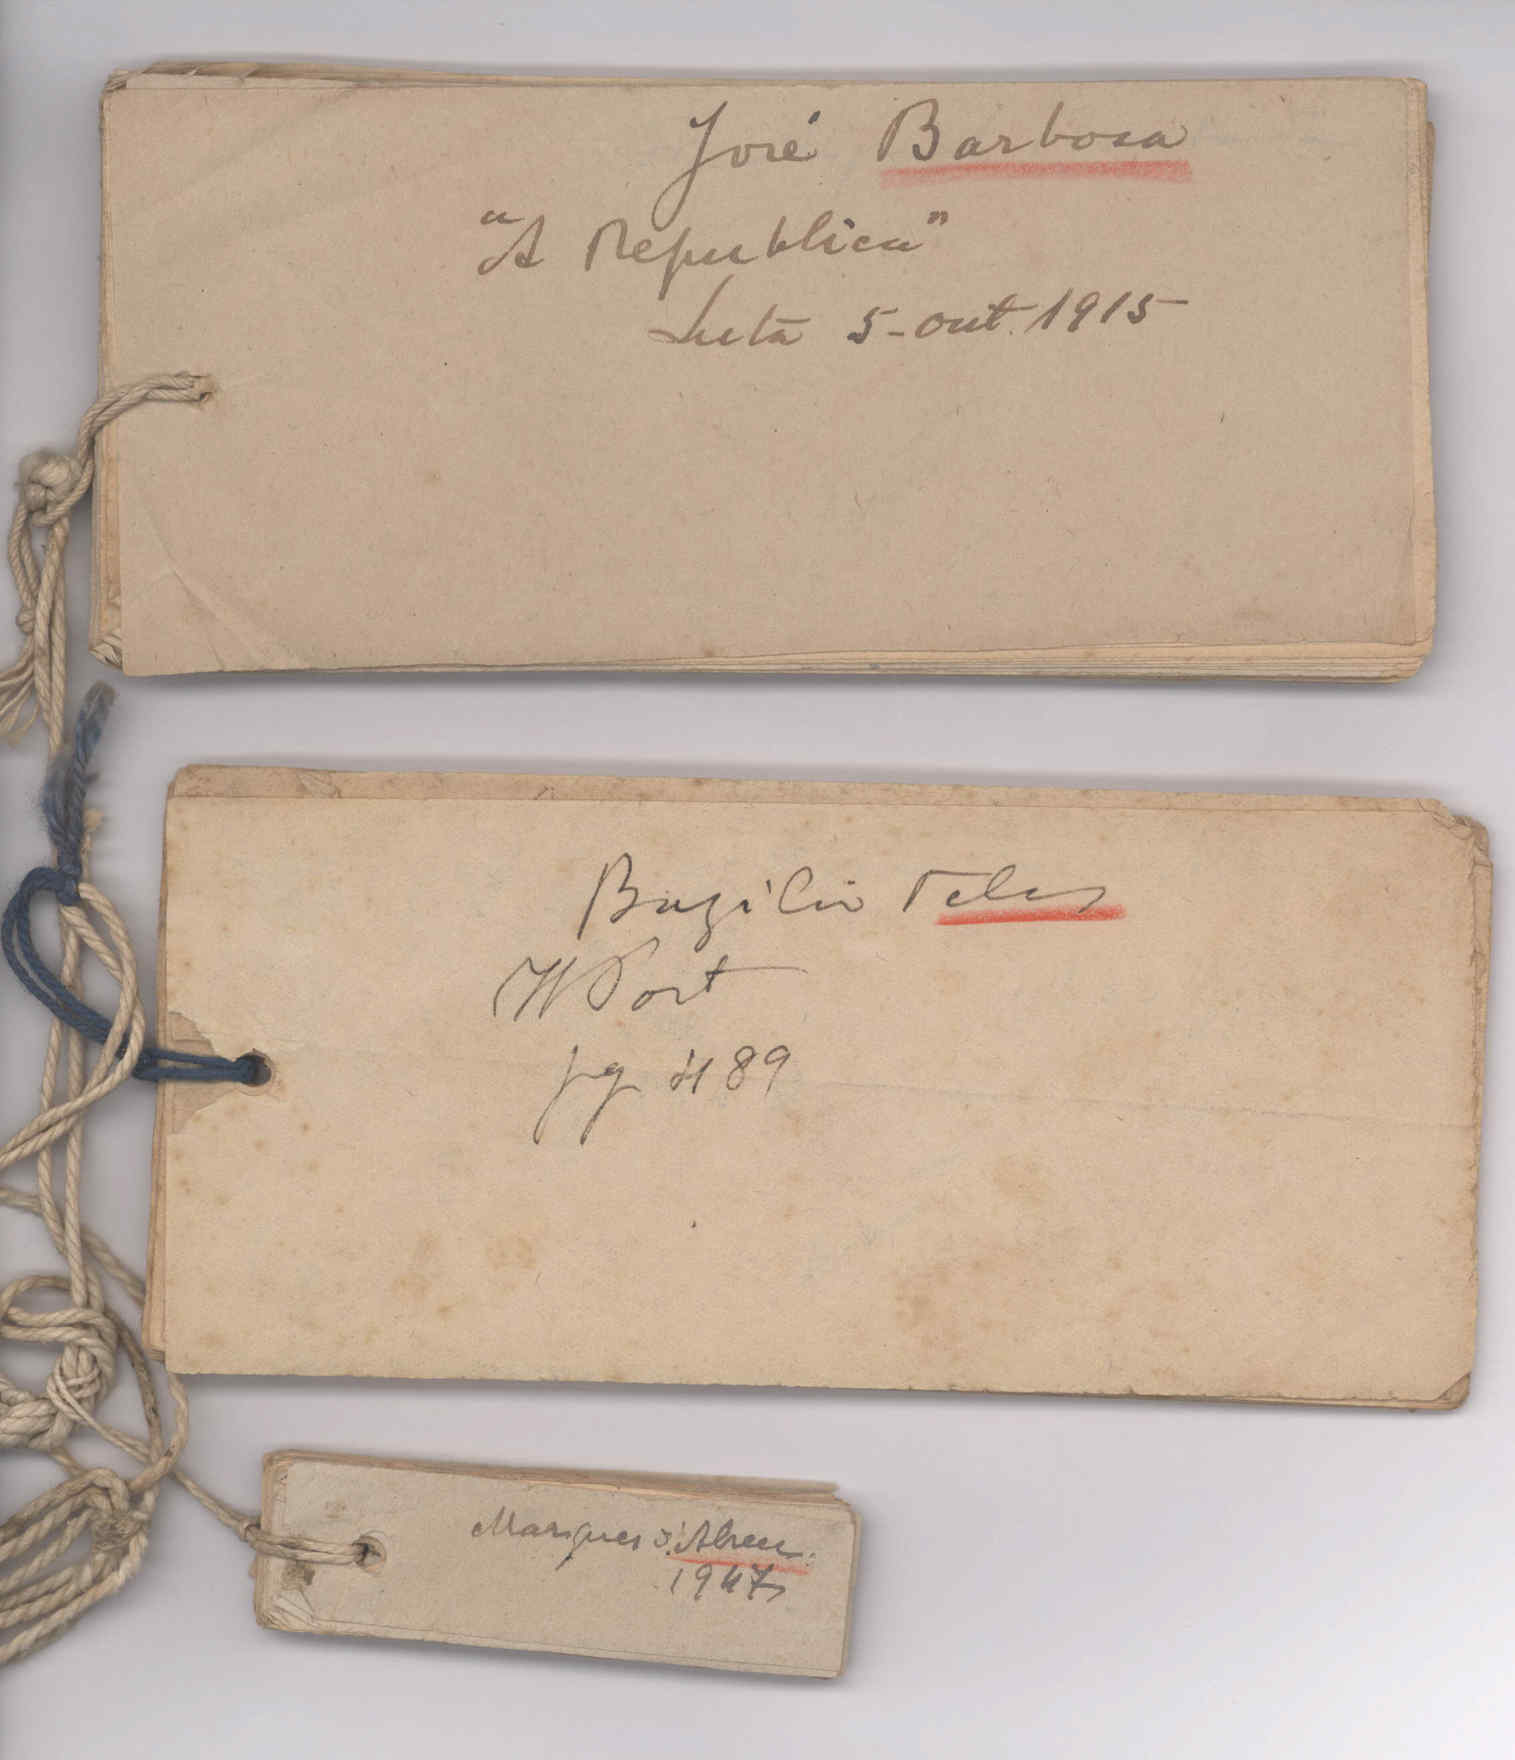 José Barbosa
"A Republica"
Lucta 5-out. 1915
Bazilio Teles
Port
pg 489
Marques d'Abreu.
1947